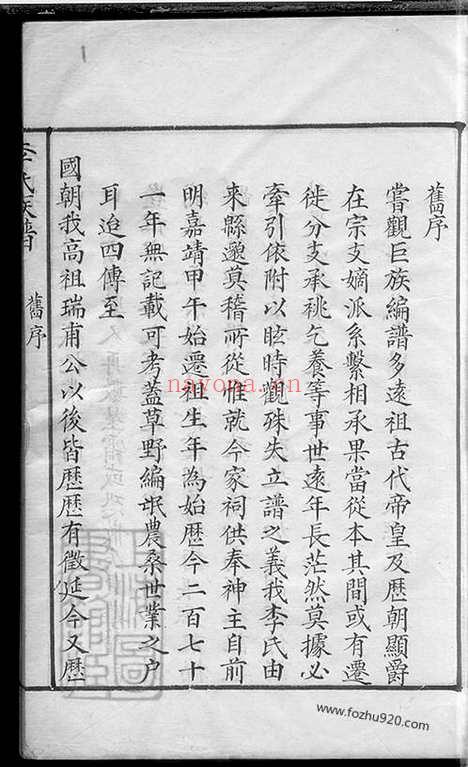 舊序
嘗觀巨族編譜多遠祖古代帝皇及歷朝顯爵
在宗支嫡派系繫相承果當從本其間或有遷
徙分支承祧乞養等事世遠年長茫然莫據必
牽引依附以眩時觀殊失立譜之義我李氏由
來縣邈莫稽所從惟就今家祠供奉神主自前
明嘉靖甲午始遷祖生年為始歷今二百七十
一年無記載可考蓋草野編氓農桑世業之户
耳迨四傳至
國朝我高祖瑞甫公以後皆歷歷有徵延今又歷
李氏族譜
舊序
nayona.cn
www.fozhu920.com